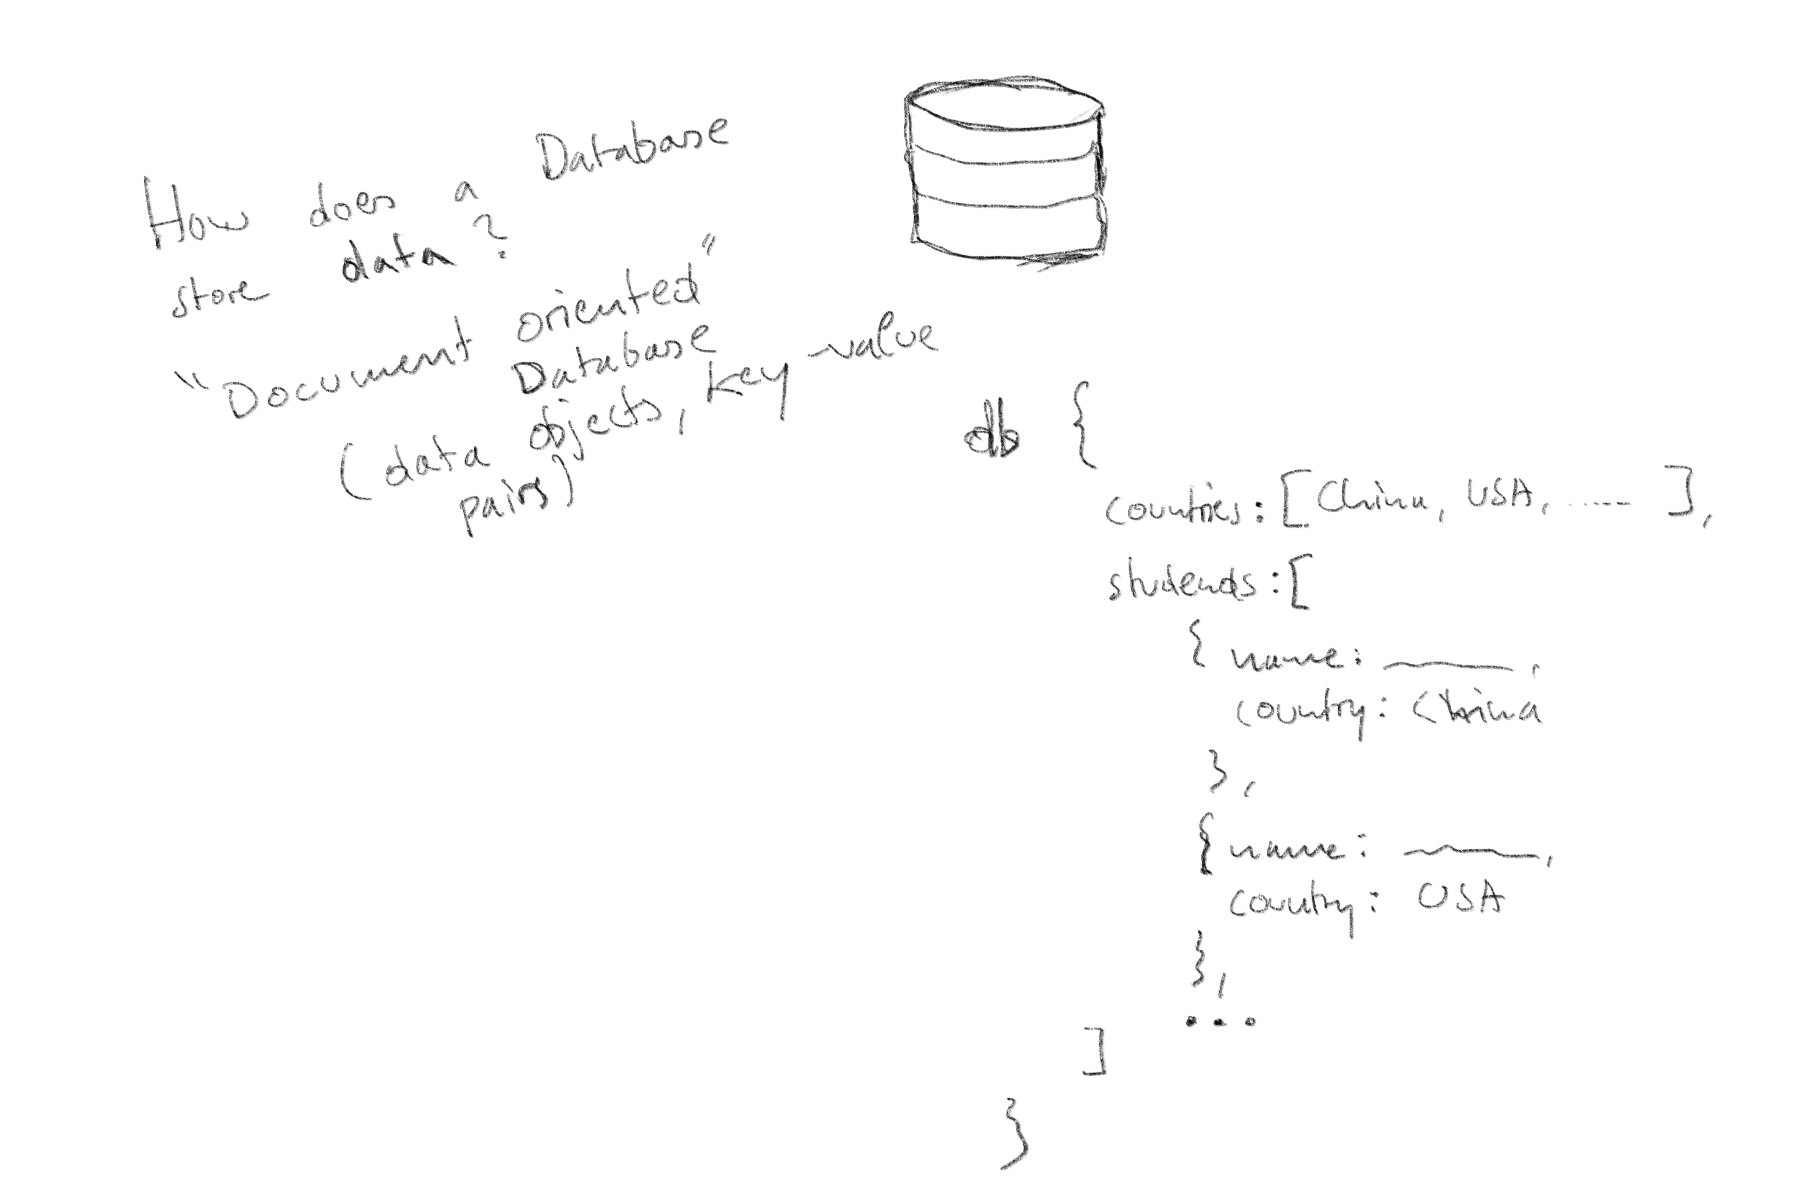 How does a Database
store data?
"Document oriented"
Database
(data objects, key-value
pairs)
db {
countries: [China, USA, ..... ],
studends: [
{ name: ______,
country: China
},
{ name: ______,
country: USA
},
...
]
}